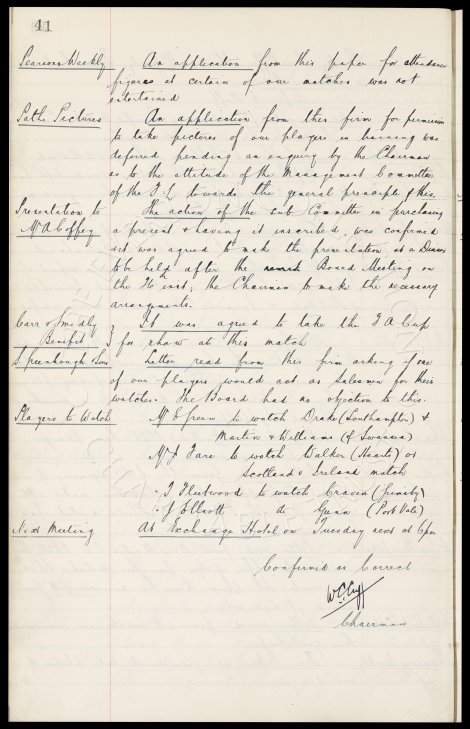 41
Pearsons Weekly An application from this paper for attendance
figures at certain of our matches was not
entertained
Pathe Pictures An application from this firm for permission
to take pictures of our players in training was
deferred pending an enquiry by the Chairman
as to the attitude of the Management Committee
of the F.L. towards the general principle of this.
Presentation to The action of the sub Committee in purchasing
Mr A Coffey a present & having it inscribed, was confirmed
& it was agreed to make the presentation at a Dinner
to be held after the Board Meeting on
the inst, the Chairman to make the necessary
arrangements.
Carr & Smedley It was agreed to take the F A Cup
Benefit for show at this match
Greenhough & Sons Letter read from this firm asking if one
of our players would act as salesman for their
watches. The Board has no objection to this.
Players to Watch Mr E Green to watch Drake (Southampton) &
Martin & Williams (of Swansea)
Mr J Fare to watch Walker (Hearts) or
Scotland v Ireland match
" T Fleetwood to watch Craven (Grimsby)
" J Elliott do Gunn (Port Vale)
Next Meeting At Exchange Hotel on Tuesday next at 6pm
Confirmed as Correct
W.C. Cuff
Chairman